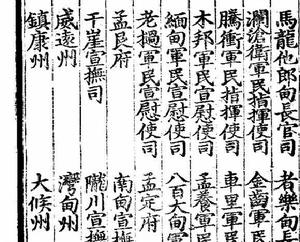 馬龍他郎甸長官司　者樂甸長
瀾滄衛軍民指揮使司　金齒軍民
騰衝軍民指揮使司　車里軍民
木邦軍民宣慰使司　孟養軍民
緬甸軍民宣慰使司　八百大甸軍
老撾軍民宣慰使司　孟定府
孟艮府　南甸宣撫
干崖宣撫司　隴川宣撫
威遠州　灣甸州
鎮康州　大候州